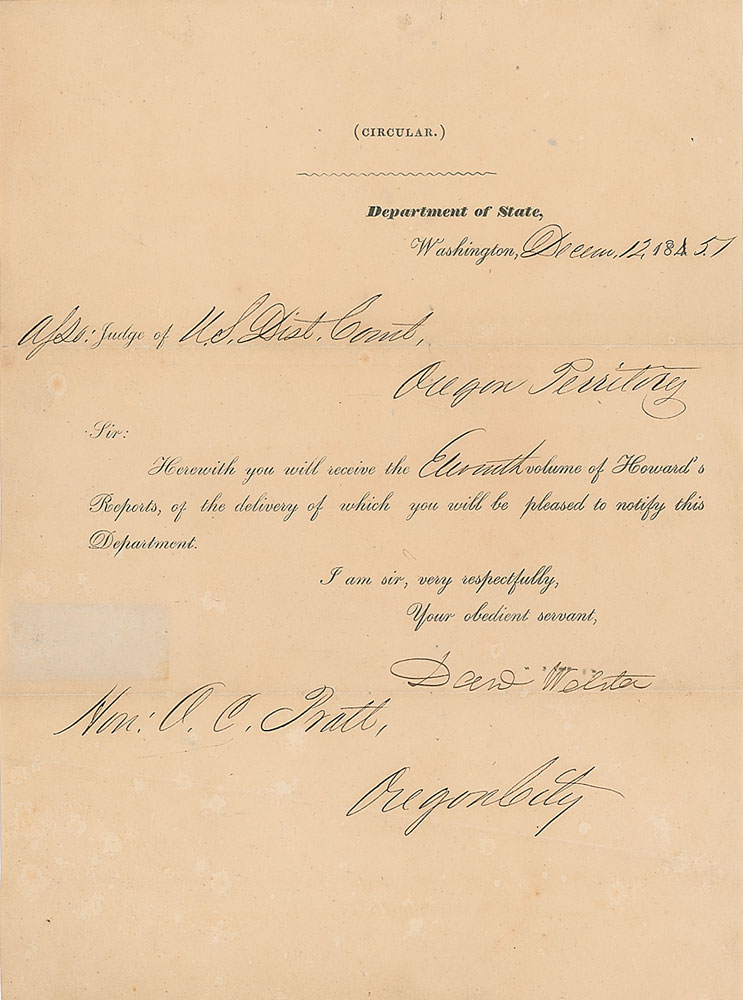 (CIRCULAR.)
Department of State,
Washington, Decem. 12, 1851
Asso: Judge of U.S. Dist. Court,
Oregon Territory
Sir:
Herewith you will receive the Eleventh volume of Howard's
Reports, of the delivery of which you will be pleased to notify this
Department.
I am sir, very respectfully,
Your obedient servant,
Danl Webster
Hon: O. C. Pratt,
Oregon City